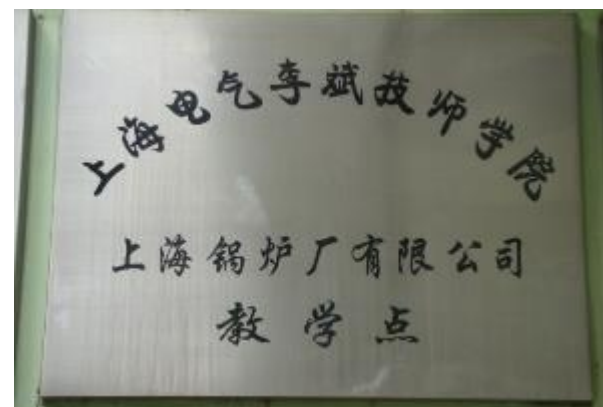 上海电气李斌技师学院
上海锅炉厂有限公司
教学点